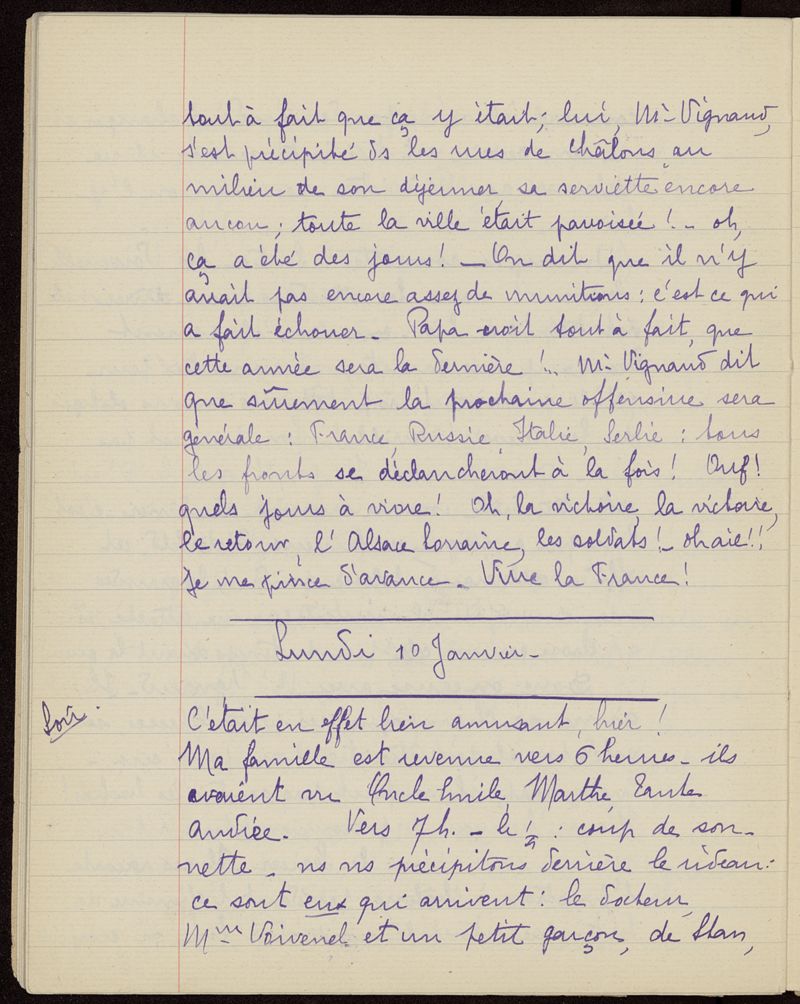 tout à fait que ça y était; lui, Mr Vignaud,
s'est précipité ds les rues de Châlons au
milieu de son déjeuner, sa serviette encore
au cou; toute la ville était pavoisée! - oh,
ça a été des jours! — On dit que il n'y
avait pas encore assez de munitions: c'est ce qui
a fait échouer. Papa croit tout à fait, que
cette année sera la dernière!.. Mr Vignaud dit
que sûrement la prochaine offensive sera
générale: France, Russie, Italie, Serbie: tous
les fronts se déclancheront à la fois! Ouf!
quels jours à vivre! Oh, la victoire, la victoire,
le retour, l'Alsace Lorraine, les soldats!- oh aïe!!
Je me pince d'avance. Vive la France!
Lundi 10 Janvier.
Soir. C'était en effet bien amusant, hier!
Ma famille est revenue vers 6 heures - ils
avaient vu Oncle Emile, Marthe, Tante
Andrée. Vers 7h. - le 1/2: coup de son-
nette - ns ns précipitons derrière le rideau:
ce sont eux qui arrivent: le docteur,
Mme Voivenel et un petit garçon, de Stan,